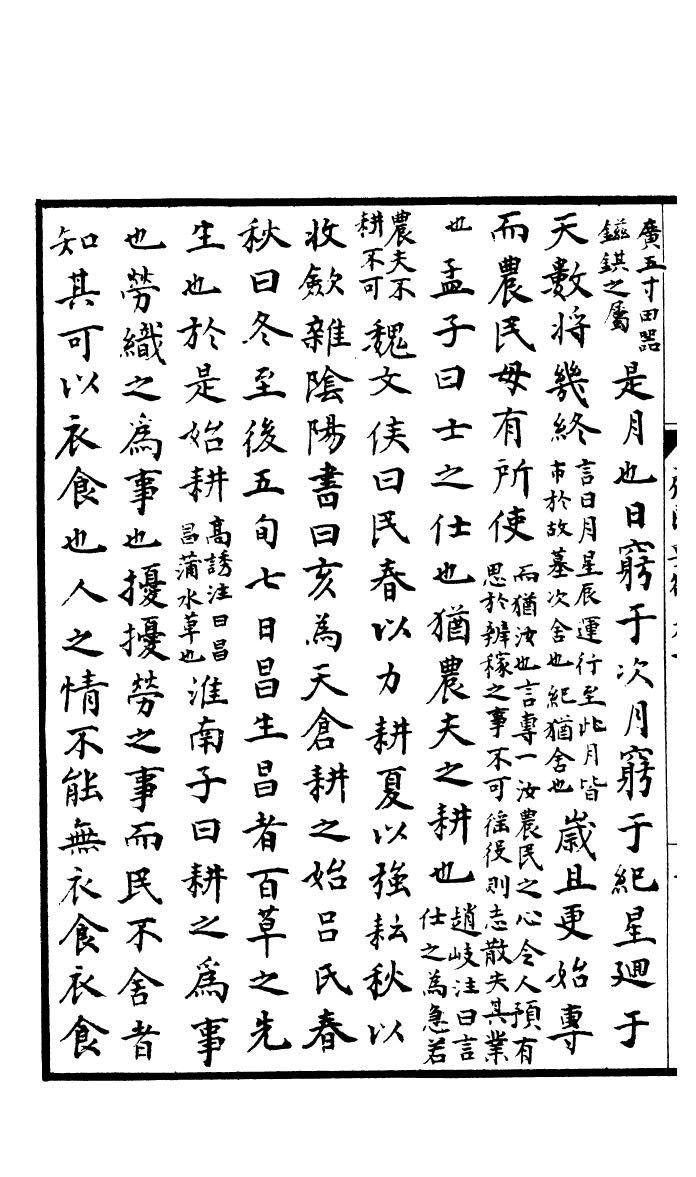 廣五寸田器
鎡錤之屬
是月也日窮于次月窮于紀星迴于
天數將幾終
言日月星辰運行至此月皆
市於故墓次舍也紀猶舍也
歲且更始專
而農民毋有所使
而猶汝也言專一汝農民之心令人預有
思於辨稼之事不可徭役則志散失其業
也
孟子曰士之仕也猶農夫之耕也
趙岐注曰言
仕之為急若
農夫不
耕不可
魏文侯曰民春以力耕夏以強耘秋以
收斂雜陰陽書曰亥為天倉耕之始呂氏春
秋曰冬至後五旬七日昌生昌者百草之先
生也於是始耕
高誘注曰昌
昌蒲水草也
淮南子曰耕之爲事
也勞織之爲事也擾擾勞之事而民不舍者
知其可以衣食也人之情不能無衣食衣食